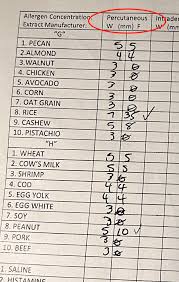 Allergen Concentration Percutaneous Intrader
Extract Manufacturer: W (mm) F W (mm)
"G"
1. PECAN 5 5
2. ALMOND 4 4
3. WALNUT 3 0
4. CHICKEN 3 0
5. AVOCADO 3 0
6. CORN 3 0
7. OAT GRAIN 3 0
8. RICE 7 35 ✓
9. CASHEW 5 8
10. PISTACHIO 3 0
"H"
1. WHEAT 5 5
2. COW'S MILK 5 5
3. SHRIMP 3 0
4. COD 4 4
5. EGG YOLK 4 4
6. EGG WHITE 3 0
7. SOY 3 0
8. PEANUT 5 10 ✓
9. PORK 3 0
10. BEEF 3 0
1. SALINE
2. HISTAMINE